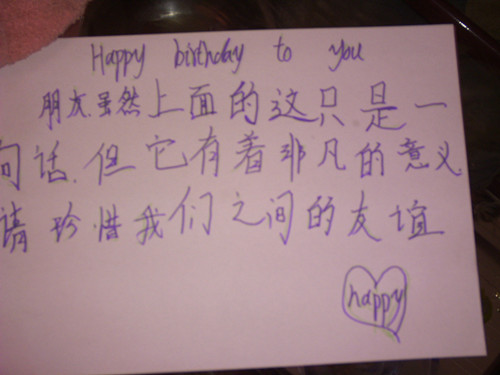 Happy birthday to you
朋友.虽然上面的这只是一
句话.但它有着非凡的意义.
请珍惜我们之间的友谊
happy